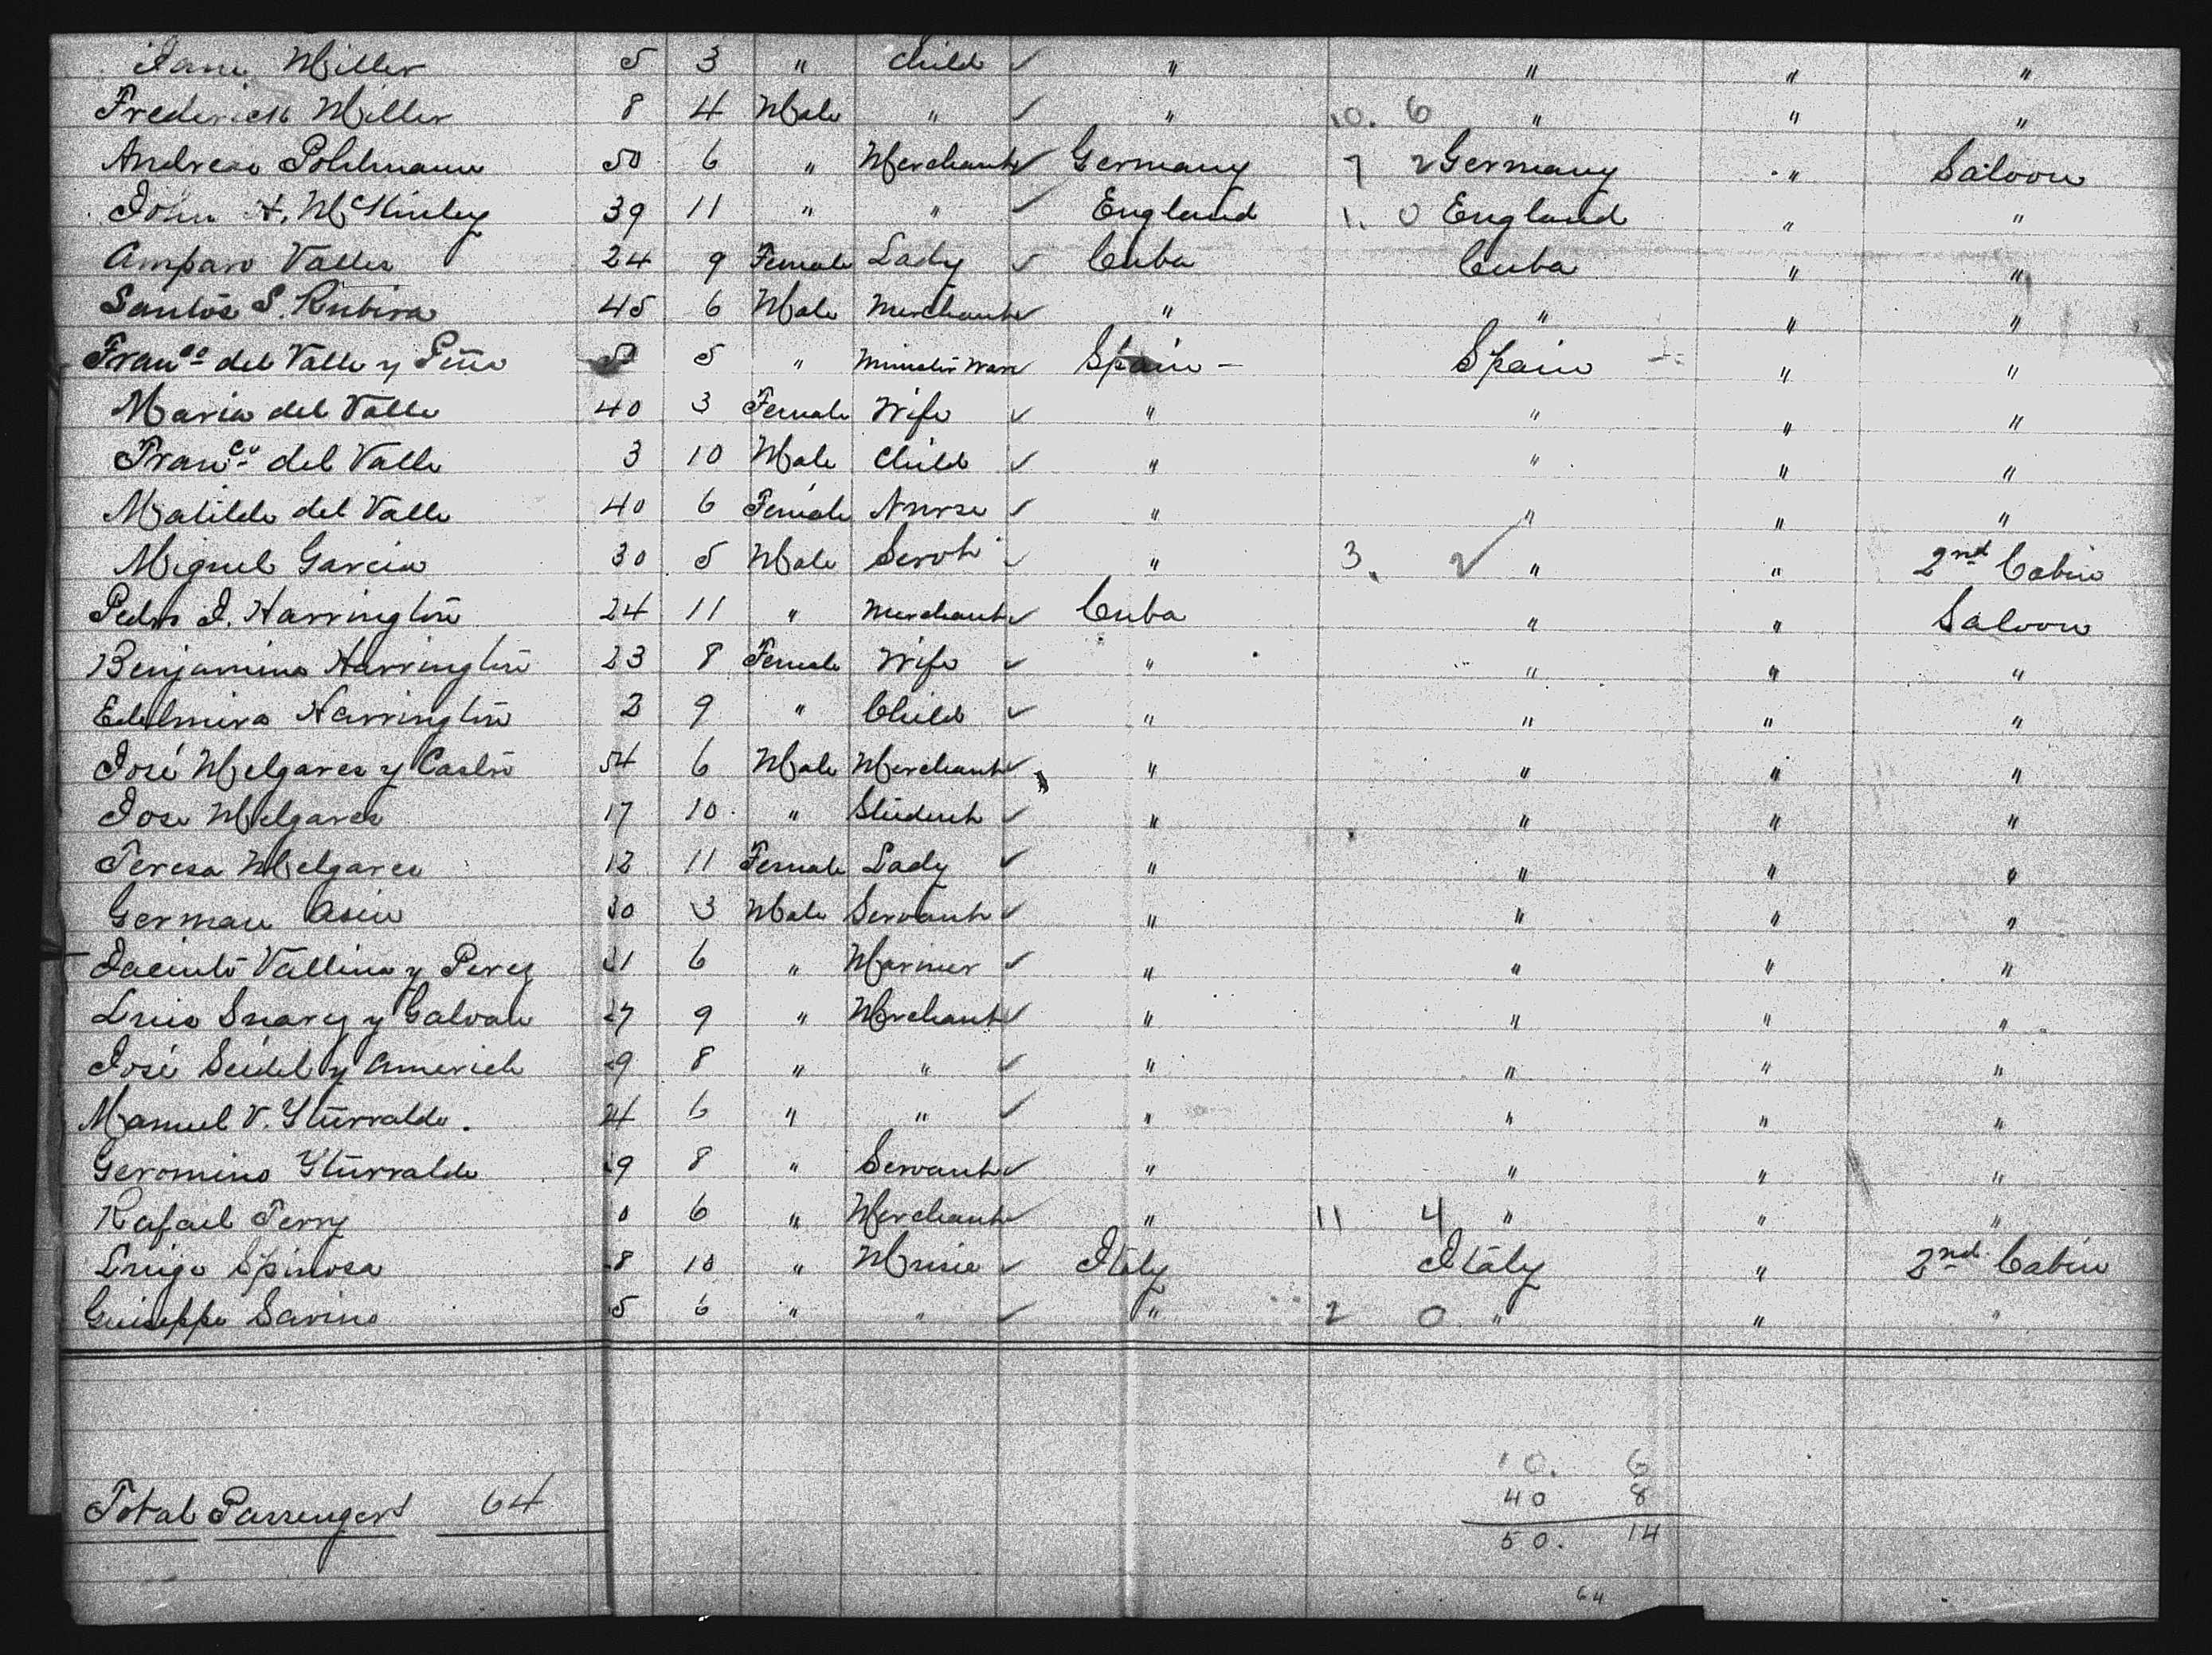 Jane Miller 5 3 " Child ✓ " " " "
Frederick Miller 8 4 Male " ✓ " 10. 6 " " "
Andreas Pohlmann 50 6 " Merchant ✓ Germany 7 2 Germany " Saloon
John H. McKinley 39 11 " " ✓ England 1. 0 England " "
Amparo Valles 24 9 Female Lady ✓ Cuba Cuba " "
Santos S. Rubira 45 6 Male Merchant ✓ " " " "
Franco del Valle y 5 " Spain - Spain " "
Maria del Valle 40 3 Female Wife ✓ " " " "
Franco del Valle 3 10 Male Child ✓ " " " "
Matilde del Valle 40 6 Female Nurse ✓ " " " "
Miguel Garcia 30 5 Male Servt ✓ " 3. 2 " " 2nd Cabin
Pedro J. Harrington 24 11 " Merchant ✓ Cuba " " Saloon
Benjamina Harrington 23 8 Female Wife ✓ " " " "
Edelmira Harrington 2 9 " Child ✓ " " " "
José Melgares y Castro 54 6 Male Merchant ✓ " " " "
Jose Melgares 17 10 " Student ✓ " " " "
Teresa Melgares 12 11 Female Lady ✓ " " " "
German Asin 30 3 Male Servant ✓ " " " "
Jacinto Vallina y Perez 21 6 " Mariner ✓ " " " "
Luis Suarez y Galvan 27 9 " Merchant ✓ " " " "
José Seidel y Americh 9 8 " " ✓ " " " "
Manuel V. Yturralde. 4 6 " " ✓ " " " "
Geromino Yturralde 9 8 " Servant ✓ " " " "
Rafael Terry 0 6 " Merchant ✓ " 11 4 " " "
Luigo Spinosa 8 10 " Music ✓ Italy Italy " 2nd Cabin
Guiseppe Savino 5 6 " " ✓ " 2 0 " " "
10. 6
40 8
Total Passengers 64
50. 14
64